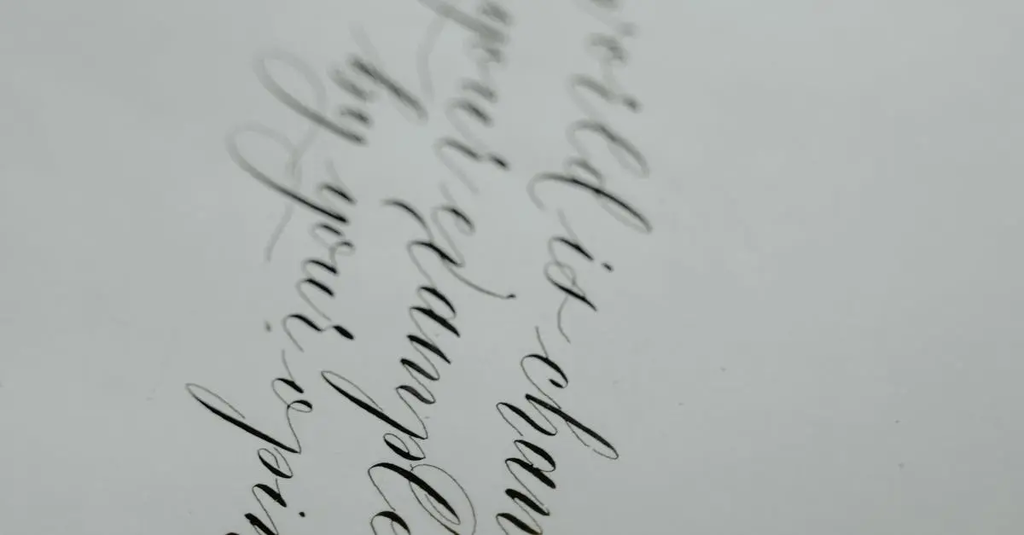 world is chan
your example
by your opin